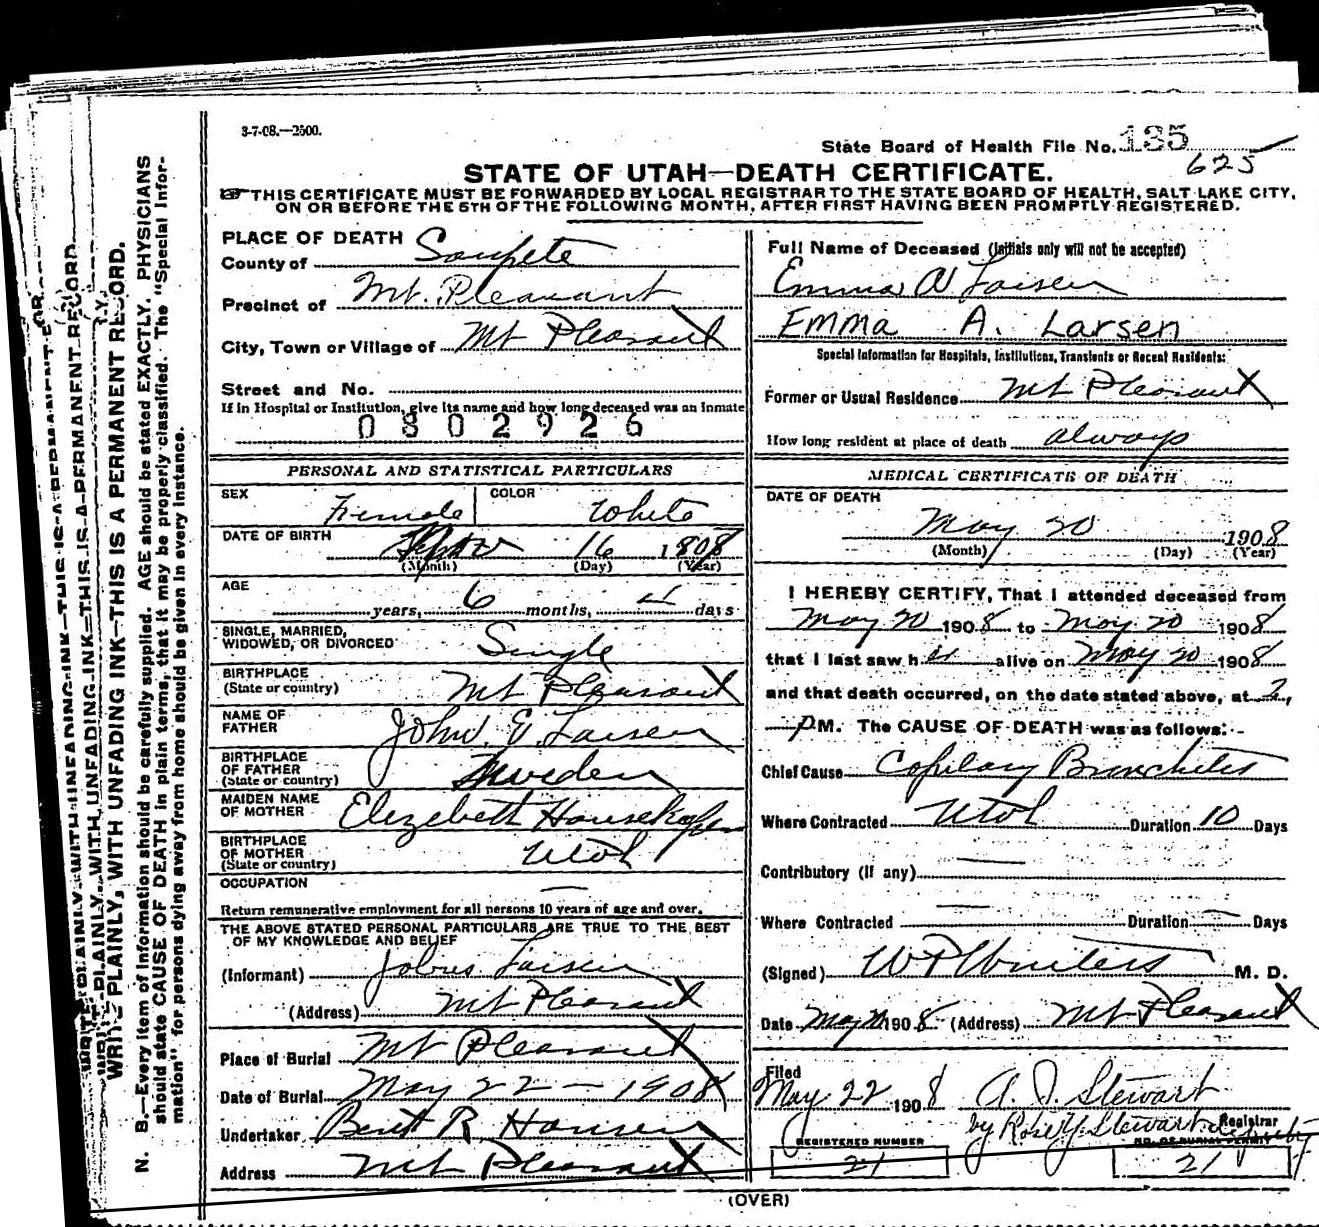 3-7-08.—2500.
State Board of Health File No. 135
625
STATE OF UTAH—DEATH CERTIFICATE.
THIS CERTIFICATE MUST BE FORWARDED BY LOCAL REGISTRAR TO THE STATE BOARD OF HEALTH, SALT LAKE CITY,
ON OR BEFORE THE 5TH OF THE FOLLOWING MONTH, AFTER FIRST HAVING BEEN PROMPTLY REGISTERED.
PLACE OF DEATH
County of Sanpete
Precinct of Mt. Pleasant
City, Town or Village of Mt Pleasant
Street and No.
If in Hospital or Institution, give its name and how long deceased was an inmate
0802926
PERSONAL AND STATISTICAL PARTICULARS
SEX Female COLOR White
DATE OF BIRTH 16
(Month) (Day) (Year)
AGE
years, 6 months, days
SINGLE, MARRIED,
WIDOWED, OR DIVORCED Single
BIRTHPLACE
(State or country) Mt Pleasant
NAME OF
FATHER John E. Larsen
BIRTHPLACE
OF FATHER
(State or country) Sweden
MAIDEN NAME
OF MOTHER Elizebeth
BIRTHPLACE
OF MOTHER
(State or country) Utah
OCCUPATION —
Return remunerative employment for all persons 10 years of age and over.
THE ABOVE STATED PERSONAL PARTICULARS ARE TRUE TO THE BEST
OF MY KNOWLEDGE AND BELIEF
(Informant) Larsen
(Address) Mt Pleasant
Place of Burial Mt Pleasant
Date of Burial May 22 — 1908
Undertaker R Hansen
Address Mt Pleasant
Full Name of Deceased (Initials only will not be accepted)
Emma A Larsen
EMMA A. Larsen
Special Information for Hospitals, Institutions, Transients or Recent Residents:
Former or Usual Residence Mt Pleasant
How long resident at place of death always
MEDICAL CERTIFICATE OF DEATH
DATE OF DEATH
May 20 1908
(Month) (Day) (Year)
I HEREBY CERTIFY, That I attended deceased from
May 20 1908 to May 20 1908
that I last saw her alive on May 20 1908
and that death occurred, on the date stated above, at 2,
P M. The CAUSE OF DEATH was as follows:
Chief Cause Capilary Bronchitis
Where Contracted Utah Duration 10 Days
Contributory (if any) —
Where Contracted — Duration — Days
(Signed) W P Winters M. D.
Date May 1908 (Address) Mt Pleasant
Filed
May 22 1908 A. J. Stewart
by Stewart deputy Registrar
REGISTERED NUMBER NO. OF BURIAL PERMIT
21 21
(OVER)
N. B.—Every item of information should be carefully supplied. AGE should be stated EXACTLY. PHYSICIANS
should state CAUSE OF DEATH in plain terms, that it may be properly classified. The "Special Infor-
mation" for persons dying away from home should be given in every instance.
WRITE PLAINLY, WITH UNFADING INK—THIS IS A PERMANENT RECORD.
WRITE PLAINLY, WITH UNFADING INK—THIS IS A PERMANENT RECORD